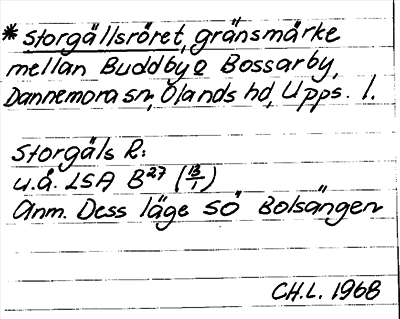 *Storgällsröret, gränsmärke
mellan Buddby o Bossarby,
Dannemora sn, Olands hd, Upps. l.
Storgäls R:
u.å. LSA B27 (13/1)
Anm. Dess läge SÖ Bolsängen
CH.L. 1968